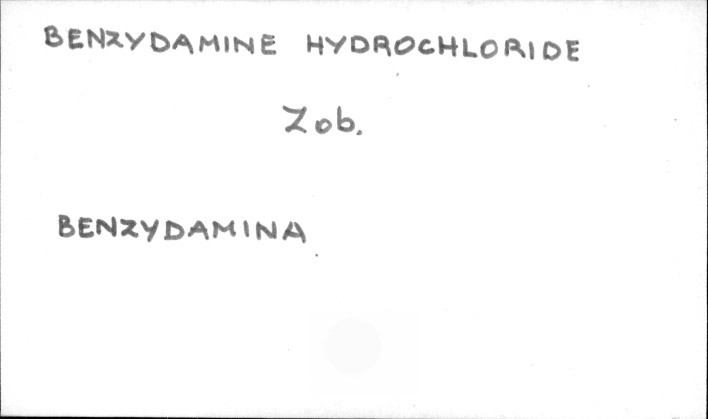 BENZYDAMINE HYDROCHLORIDE
Zob.
BENZYDAMINA